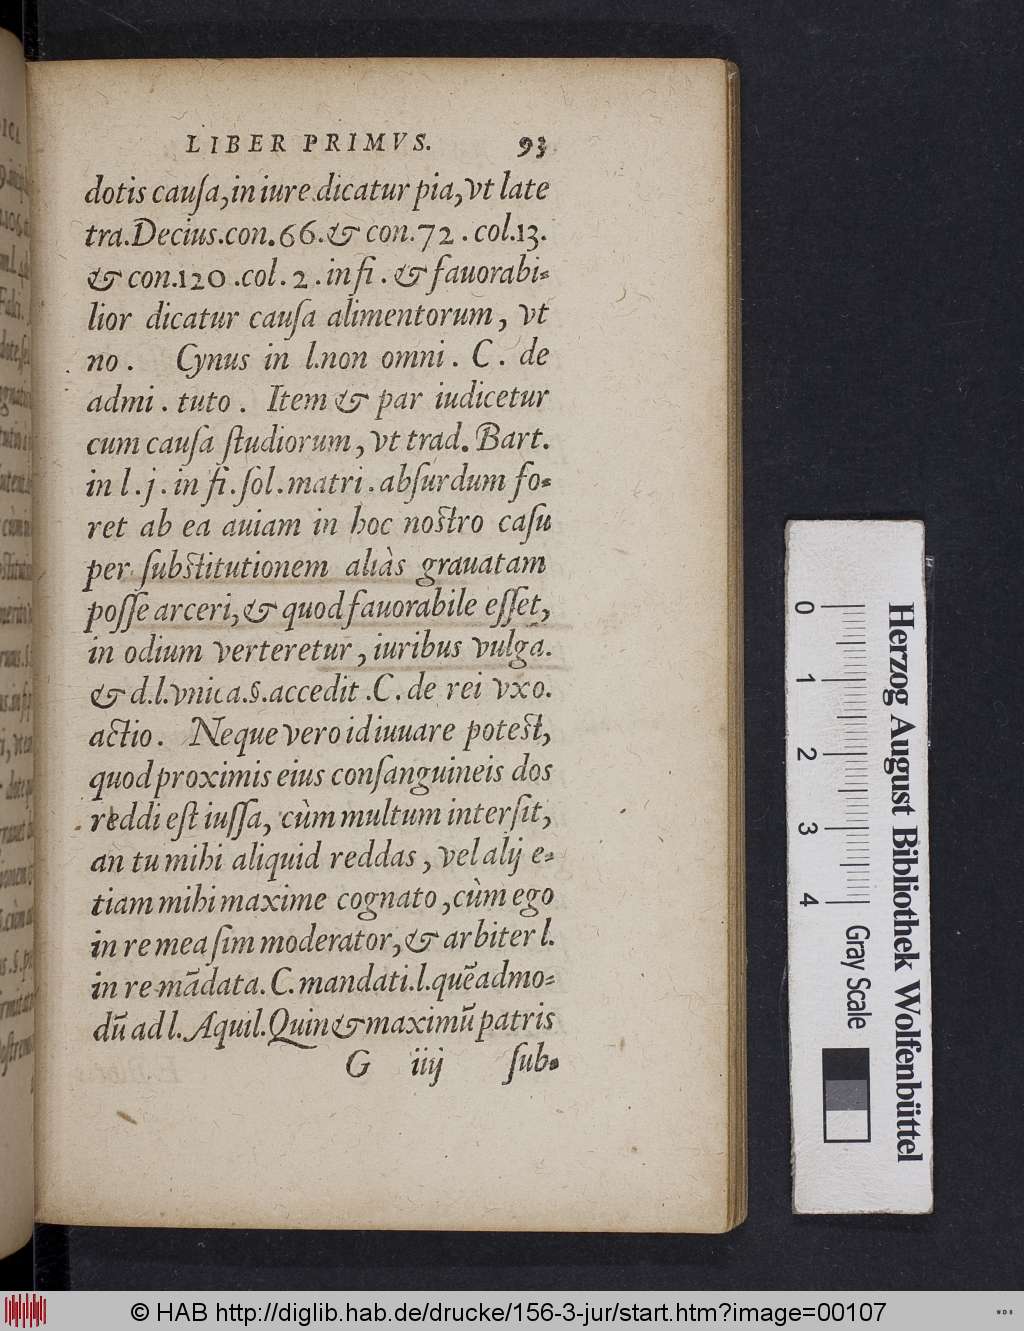 LIBER PRIMVS. 93
dotis cauſa, in iure dicatur pia, vt late
tra. Decius. con. 66. & con. 72. col. 13.
& con. 120. col. 2. in fi. & fauorabi-
lior dicatur cauſa alimentorum, vt
no. Cynus in l. non omni. C. de
admi. tuto. Item & par iudicetur
cum cauſa ſtudiorum, vt trad. Bart.
in l. j. in fi. ſol. matri. abſurdum fo-
ret ab ea auiam in hoc noſtro caſu
per ſubſtitutionem aliàs grauatam
poſſe arceri, & quod fauorabile eſſet,
in odium verteretur, iuribus vulga.
& d. l. vnica. §. accedit. C. de rei vxo.
actio. Neque vero id iuuare poteſt,
quod proximis eius conſanguineis dos
reddi eſt iuſſa, cùm multum interſit,
an tu mihi aliquid reddas, vel alij e-
tiam mihi maxime cognato, cùm ego
in re mea ſim moderator, & arbiter l.
in re mādata. C. mandati. l. quēadmo-
dū ad l. Aquil. Quin & maximū patris
G iiij ſub-
0 1 2 3 4
Herzog August Bibliothek Wolfenbüttel
Gray Scale
© HAB http://diglib.hab.de/drucke/156-3-jur/start.htm?image=00107